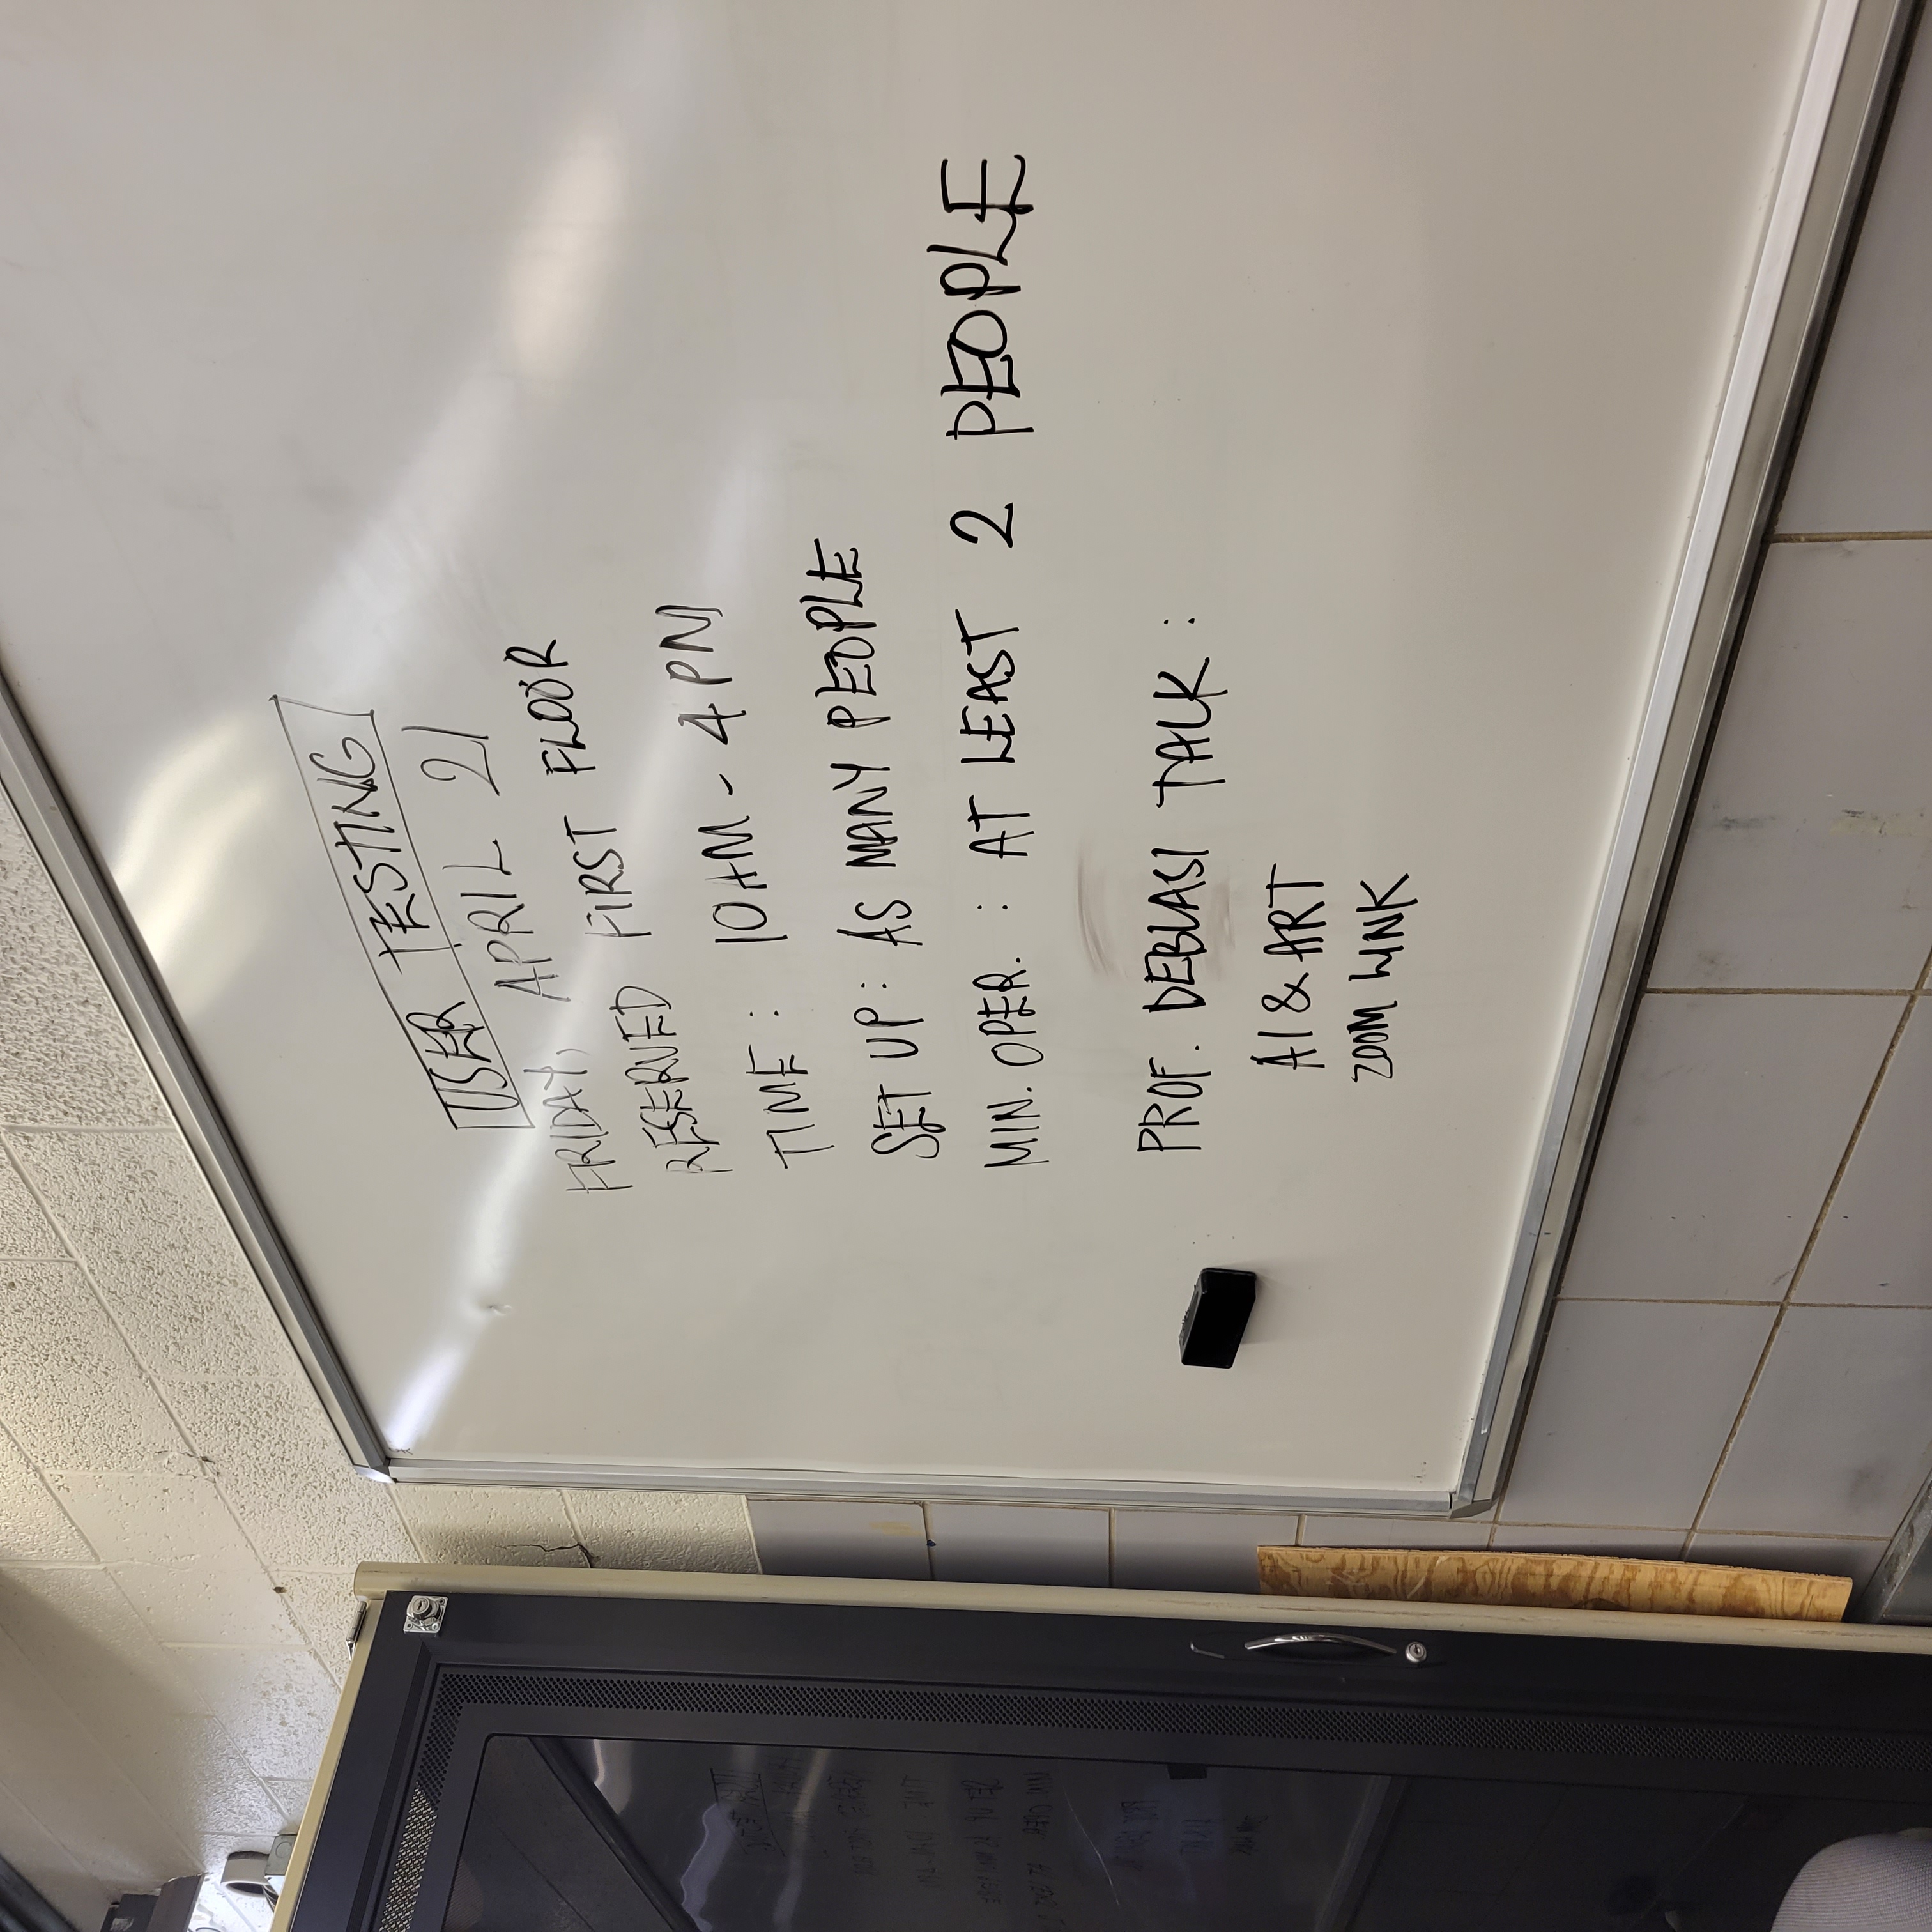 USER TESTING
FRIDAY, APRIL 21
RESERVED FIRST FLOOR
TIME : 10AM - 4PM
SET UP : AS MANY PEOPLE
MIN. OPER. : AT LEAST 2 PEOPLE
PROF. DEBLASI TALK :
AI & ART
ZOOM LINK